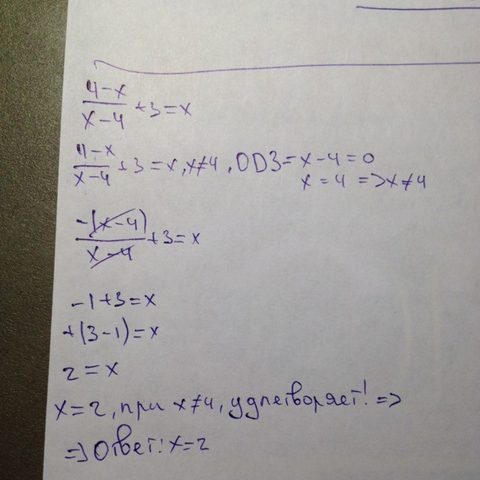 4-x/x-4 +3=x
4-x/x-4 +3=x, x≠4, ОДЗ= x-4=0
x=4 =>x≠4
-(x-4)/x-4 +3=x
-1+3=x
+(3-1)=x
2=x
x=2, при x≠4, удлетворяет! =>
=> Ответ: x=2